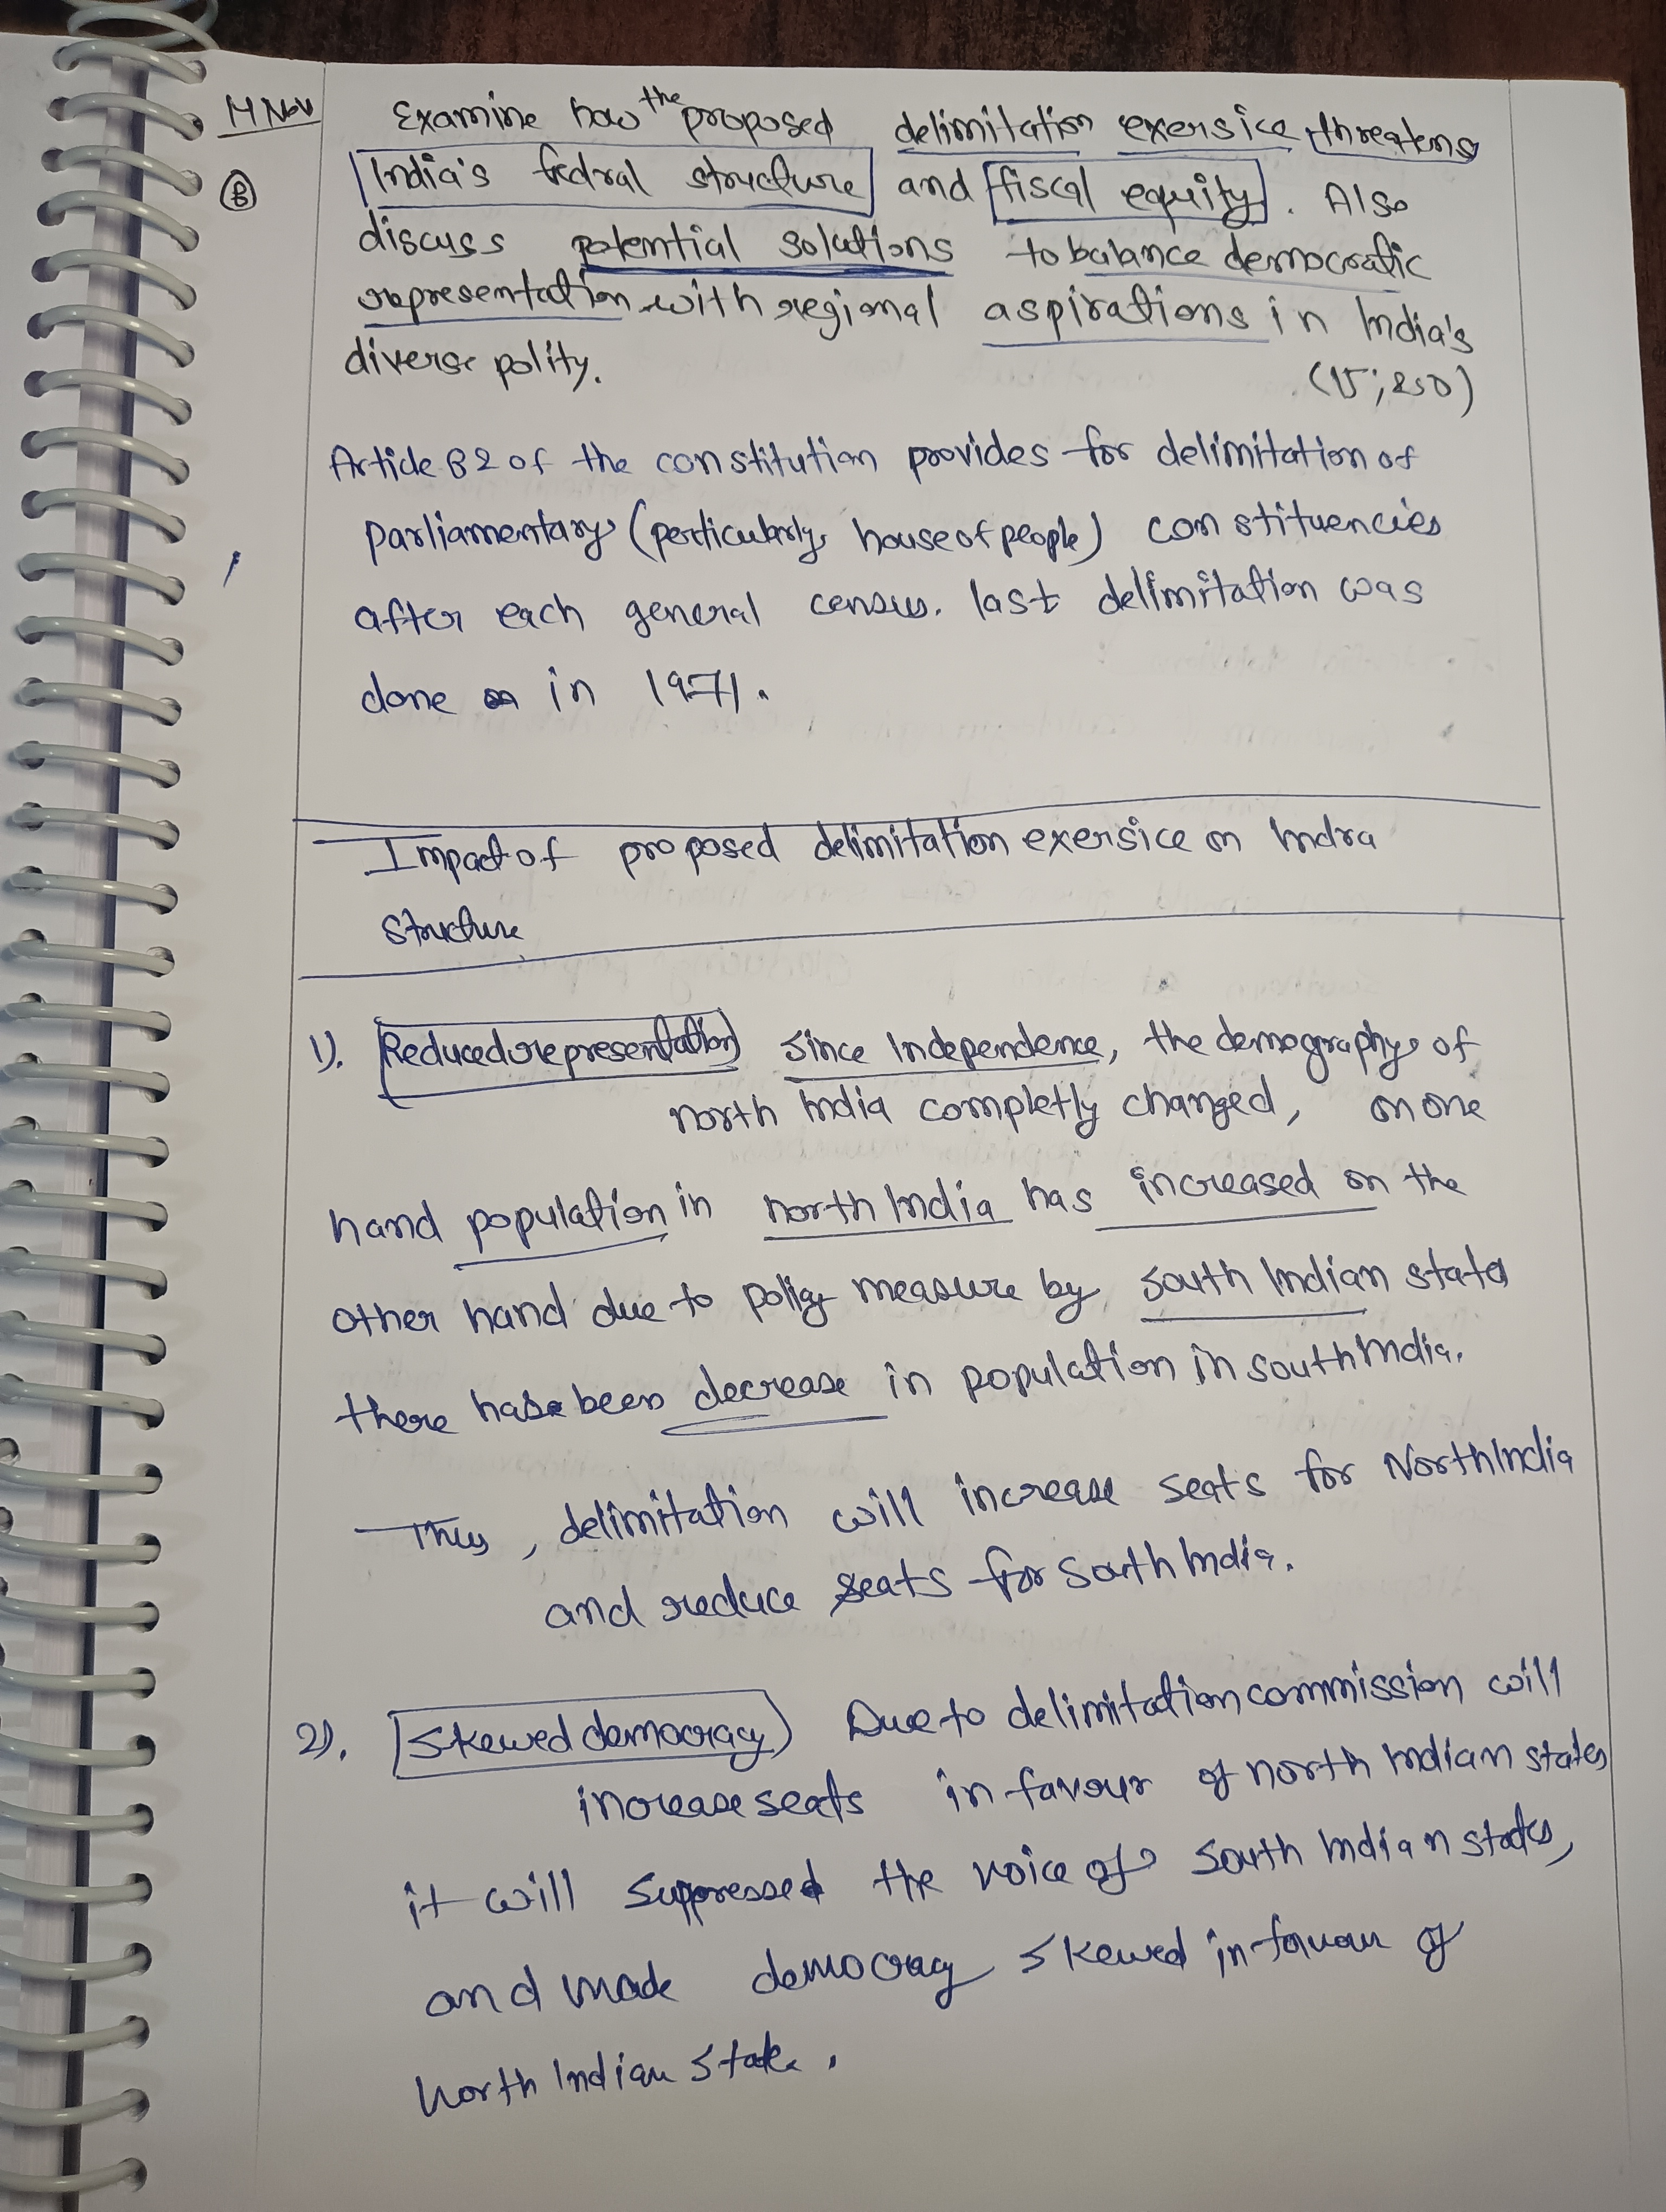 14 Nov
Examine how the proposed delimitation exersice threatens
India's fedral structure and fiscal equity. Also
discuss potential solutions to balance democratic
representation with regional aspirations in India's
diverse polity.
(15; 250)
Article 82 of the constitution provides for delimitation of
parliamentary (perticularly house of people) constituencies
after each general census. last delimitation was
done in 1971.
Impact of proposed delimitation exersice on India
structure
1). Reduced representation Since Independence, the demography of
north India completly changed, on one
hand population in north India has increased on the
other hand due to policy measure by south Indian state
there has been decrease in population in south India.
Thus, delimitation will increase seats for North India
and reduce seats for south India.
2). Skewed democracy Due to delimitation commission will
increase seats in favour of north Indian states
it will suppressed the voice of south Indian states,
and made democracy skewed in favour of
north Indian state.